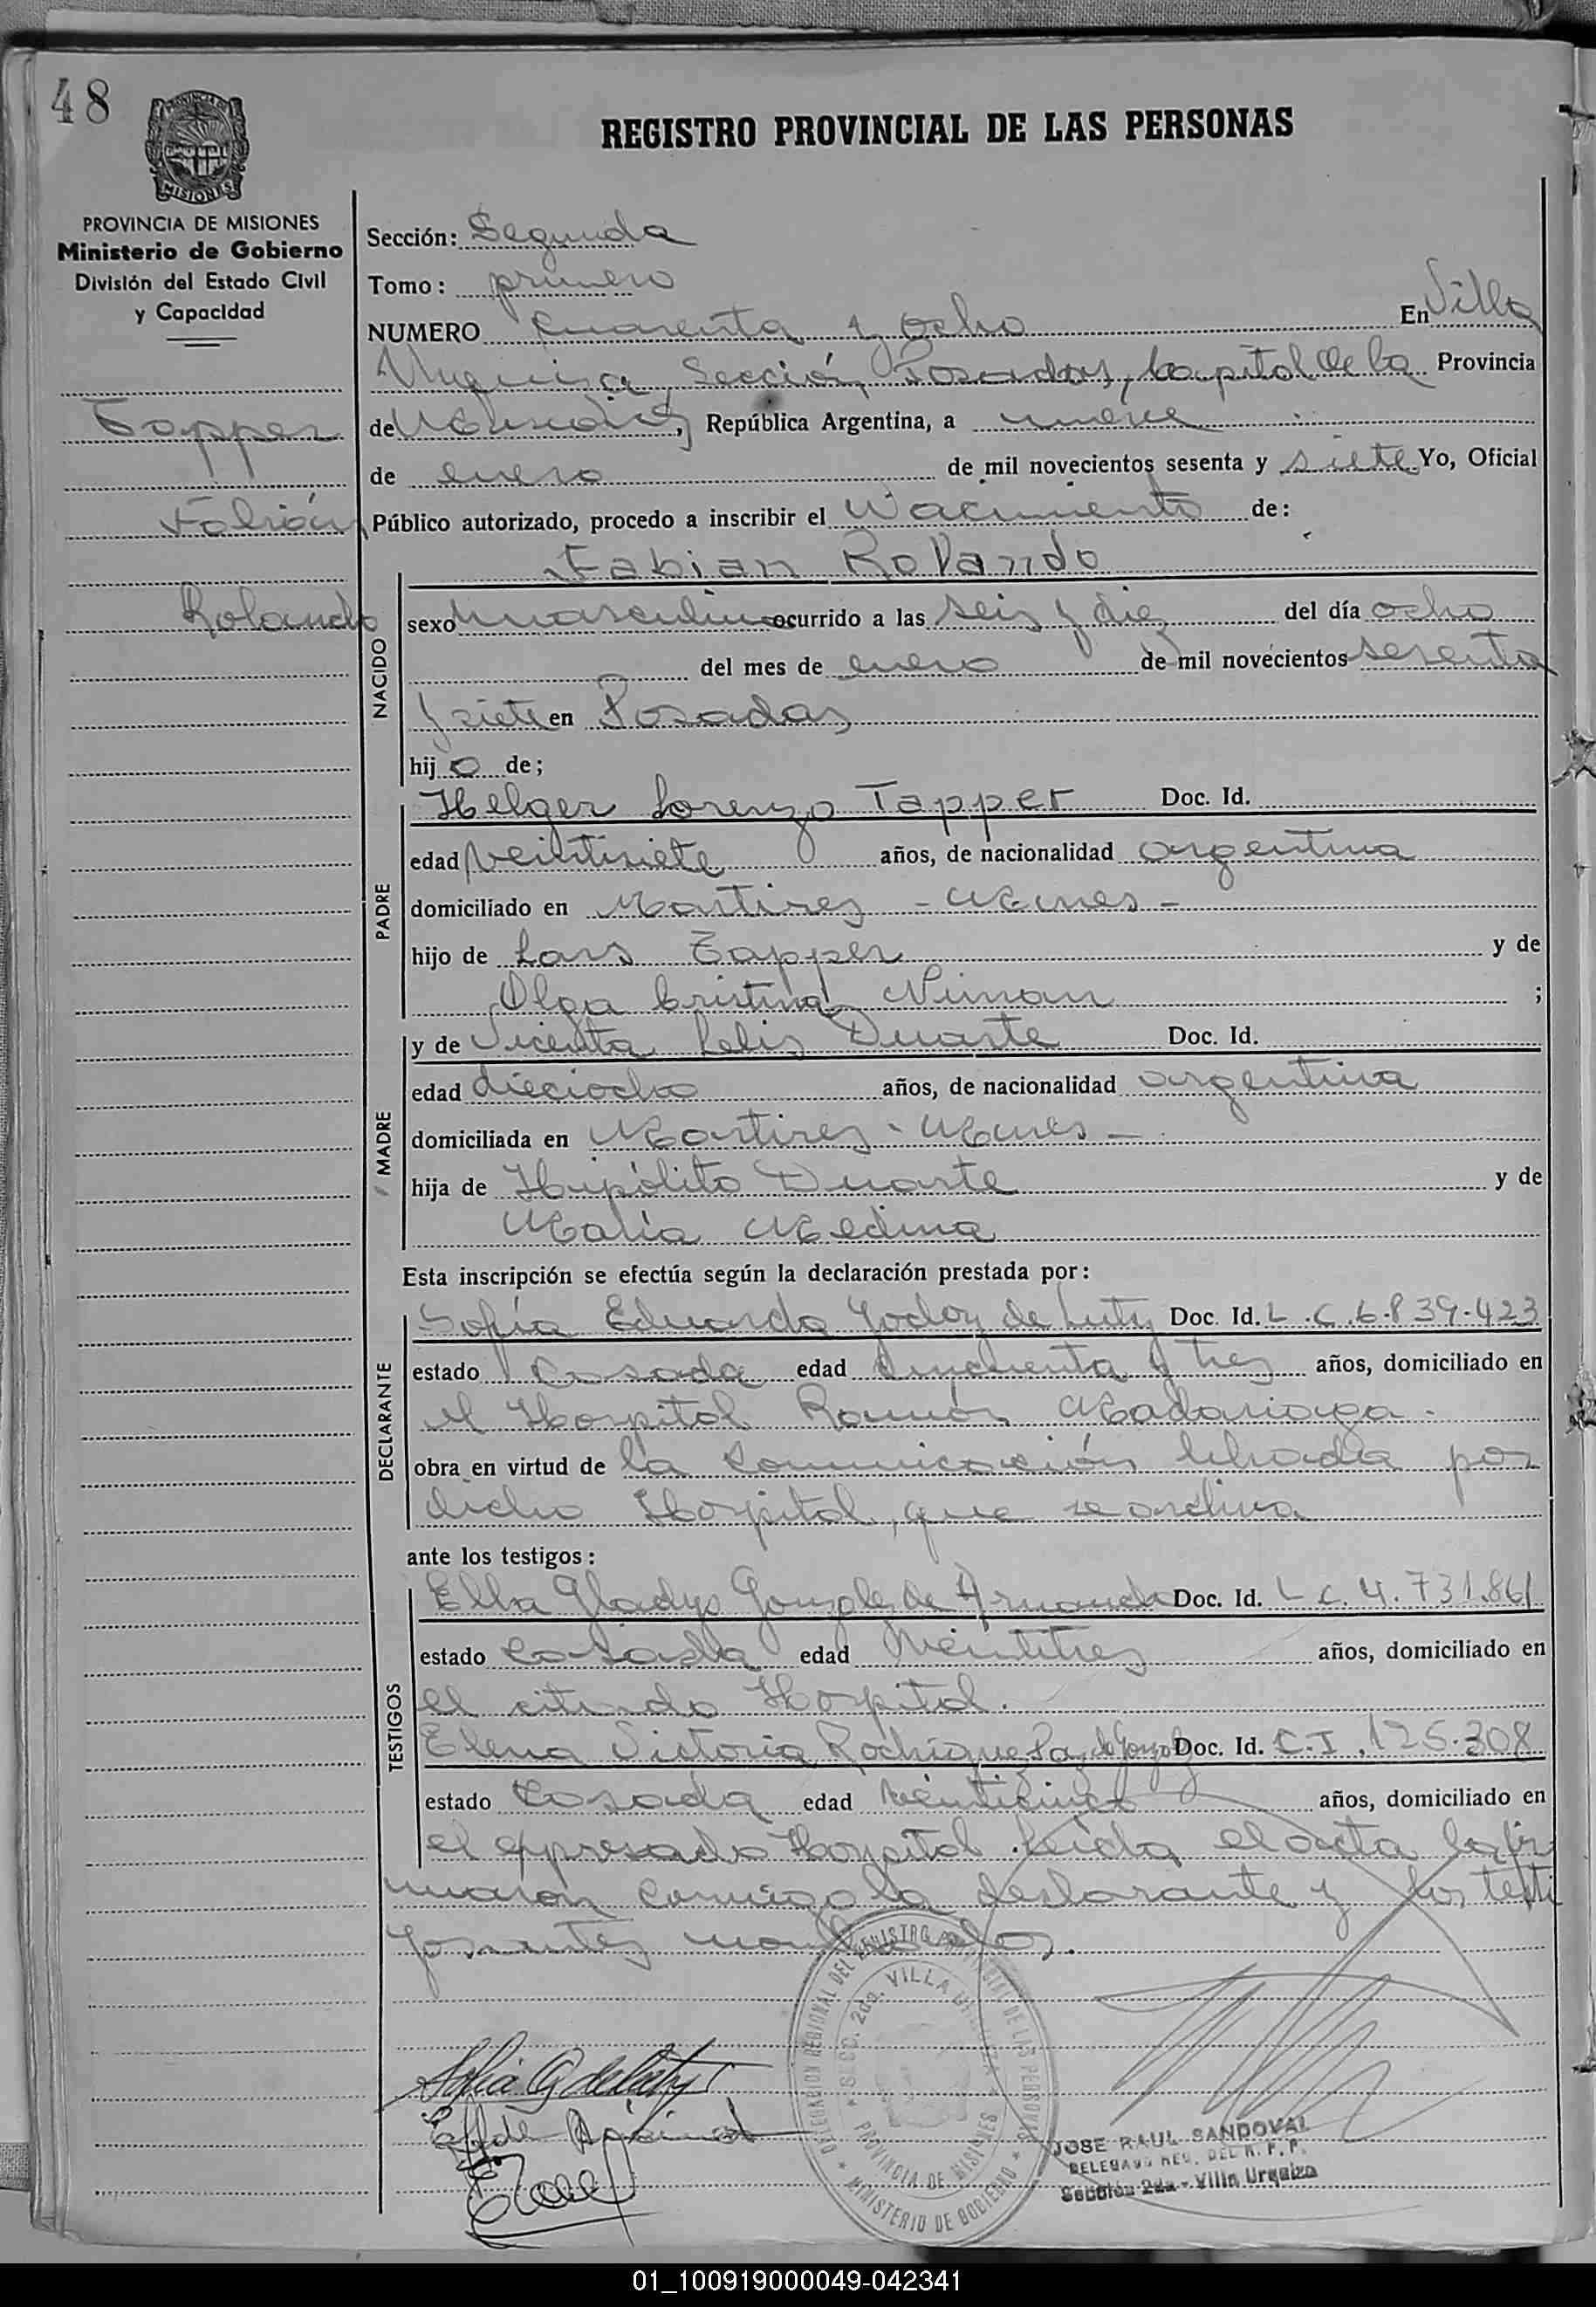 48
PROVINCIA DE MISIONES
Ministerio de Gobierno
División del Estado Civil
y Capacidad
Tapper
Fabián
Rolando
REGISTRO PROVINCIAL DE LAS PERSONAS
Sección: Segunda
Tomo: primero
NUMERO cuarenta y ocho En Villa
Urquiza, Sección, Posadas, Capital de la Provincia
de Misiones, República Argentina, a nueve
de enero de mil novecientos sesenta y siete Yo, Oficial
Público autorizado, procedo a inscribir el Nacimiento de:
Fabian Rolando
NACIDO
sexo masculino ocurrido a las seis y diez del día ocho
del mes de enero de mil novecientos sesenta
y siete en Posadas
hijo de;
PADRE
Helger Lorenzo Tapper Doc. Id.
edad veintisiete años, de nacionalidad argentina
domiciliado en Martires - Mnes -
hijo de Lars Tapper y de
Olga Cristina Niman ;
MADRE
y de Vicenta Felis Duarte Doc. Id.
edad dieciocho años, de nacionalidad argentina
domiciliada en Martires - Mnes -
hija de Hipólito Duarte y de
María Medina
Esta inscripción se efectúa según la declaración prestada por:
DECLARANTE
Sofía Eduarda Godoy de Luty Doc. Id. L.C. 6.839.423
estado Casada edad cincuenta y tres años, domiciliado en
el Hospital Ramón Madariaga.
obra en virtud de la comunicación librada por
dicho Hospital, que se archiva
ante los testigos:
TESTIGOS
Elba Gladys Gonzalez de Doc. Id. L C. 4.731.861
estado casada edad veintitres años, domiciliado en
el citado Hospital.
Elena Victoria Rodríguez Doc. Id. C.I. 125.308
estado casada edad veinticinco años, domiciliado en
el expresado Hospital. Leída el acta la fir
maron conmigo la declarante y los testi
gos antes nombrados.
Sofia G de Luty
DELEGACION REGIONAL DEL REGISTRO PROVINCIAL DE LAS PERSONAS
SECC. 2da. VILLA URQUIZA
PROVINCIA DE MISIONES
MINISTERIO DE GOBIERNO
JOSE RAUL SANDOVAL
DELEGADO REG. DEL R. P. P.
Sección 2da - Villa Urquiza
01_100919000049-042341